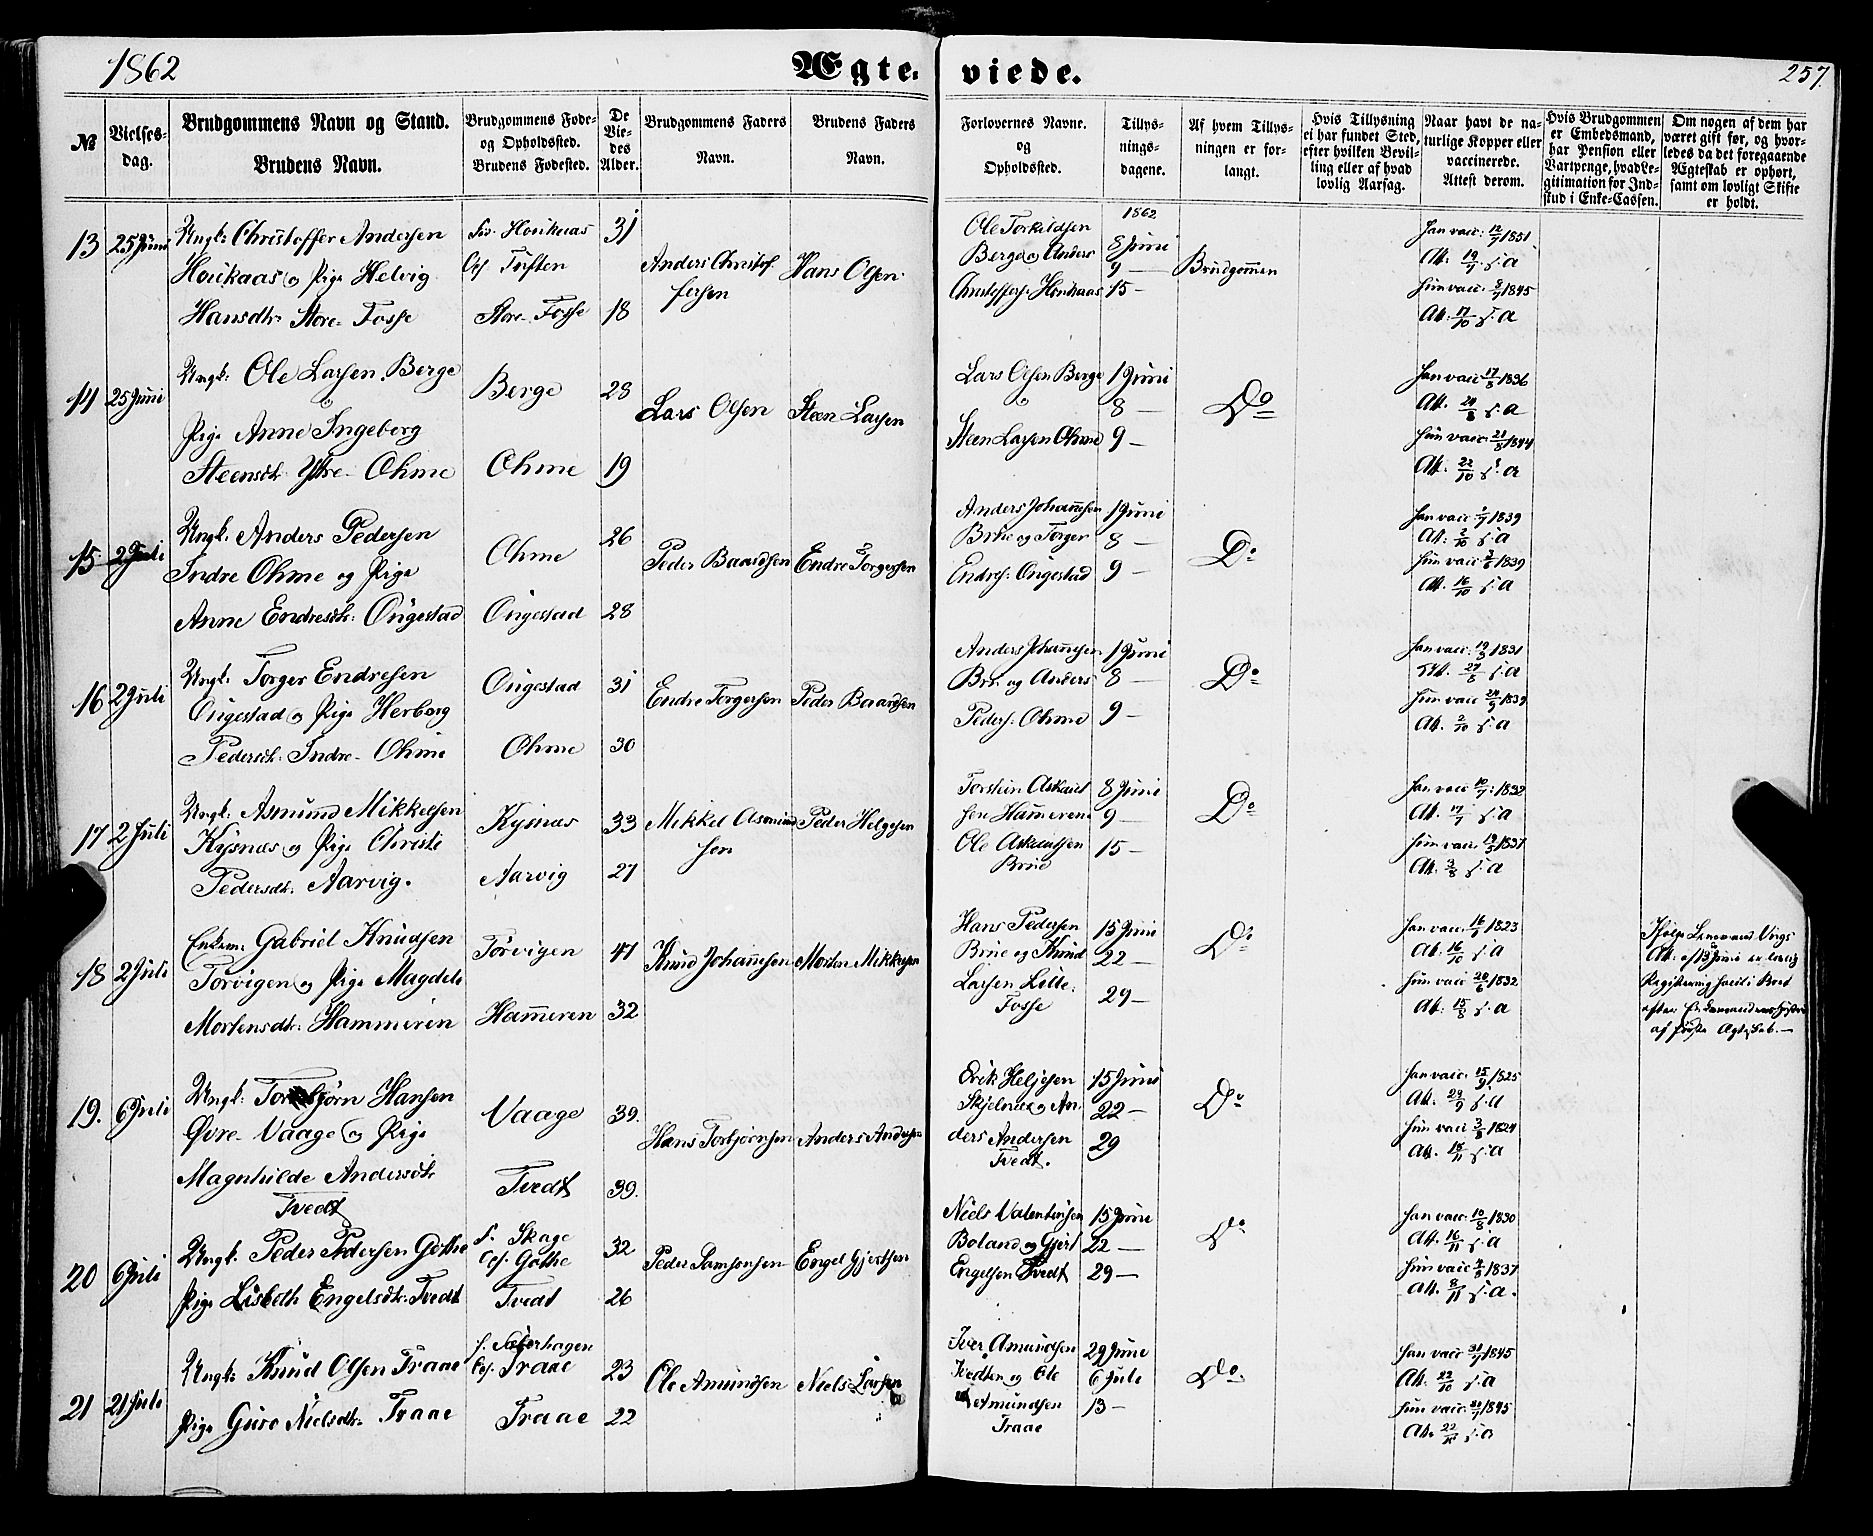 1862
Ægte-
viede.
257.
№
Vielses-
dag.
Brudgommens Navn og Stand.
Brudens Navn.
Brudgommens Føde-
og Opholdssted.
Brudens Fødested.
De
Vie-
des
Alder.
Brudgommens Faders
Navn.
Brudens Faders
Navn.
Forlovernes Navne.
og
Opholdssted.
Tillys-
nings-
dagene.
Af hvem Tillys-
ningen er for-
langt.
Hvis Tillysning
ei har fundet Sted,
efter hvilken Bevil-
ling eller af hvad
lovlig Aarsag.
Naar havt de na-
turlige Kopper eller
vaccinerede.
Attest derom.
Hvis Brudgommen
er Embedsmand,
har Pension eller
Vartpenge, hvad Le-
gitimation for Ind-
skud i Enke-Cassen.
Om nogen af dem har
været gift før, og hvor-
ledes da det foregaaende
Ægteskab er ophørt,
samt om lovligt Skifte
er holdt.
13
25 Juni
Ungk: Christoffer Andersen
Houkaas og Pige Helvig
Hansdtr. Store-Fosse
Houkaas
Tuften
Store-Fosse
31
18
Anders Christof
fersen
Hans Olsen
Ole Torkildsen
Berge og Anders
Christoffers: Houkaas
1862
8 Juni
9 —
15 —
Brudgommen
Han vacc: 12/7 1831
Att: 19/7 s: a
Hun vacc: 8/9 1845
Att: 17/10 s: a
14
25 Juni
Ungk: Ole Larsen Berge
Pige Anne Ingeborg
Steensdtr: Ytre-Ohme
Berge
Ohme
28
19
Lars Olsen
Steen Larsen
Lars Olsen Berge
Steen Larsen Ohme
1 Juni
8 —
9 —
Do
Han vacc 17/8 1836
Att. 24/8 s: a
Hun vacc: 21/8 1844
Att. 22/10 s: a
15
2 Juli
Ungk. Anders Pedersen
Indre Ohme og Pige
Anne Endresdtr: Ougestad
Ohme
Ougestad
26
28
Peder Baardsen
Endre Torgersen
Anders Johannesen
Brue og Torger
Endres: Ougestad
1 Juni
8 —
9 —
Do
1839
Att: 2/10 s: a
1839
Att. 16/10 s: a
16
2 Juli
Ungk. Torger Endresen
Ougestad og Pige Herborg
Pedersdtr: Indre-Ohme
Ougestad
Ohme
31
30
Endre Torgersen
Peder Baardsen
Anders Johannesen
Brue og Anders
Peders: Ohme
1 Juni
8 —
9 —
Do
1831
Att. 27/8 s: a
Hun vacc: 24/9 1839
Att. 2/10 s: a
17
2 Juli
Ungk: Asmund Mikkelsen
Kysnæs og Pige Christi
Pedersdtr: Aarvig.
Kysnæs
Aarvig
33
27
Mikkel Asmund
sen
Peder Helgesen
sen Hameren
Ole
Brue
8 Juni
9 —
15 —
Do
Att. 17/7 s: a
Hun vacc. 19/5 1837
Att. 3/8 s: a
18
2 Juli
Enkem: Gabriel Knudsen
Torvigen og Pige Magdeli
Mortensdtr: Hammeren
Torvigen
Hameren
41
32
Knud Johannesen
Morten Mikkelsen
Hans Pedersen
Brue og Knud
Larsen Lille-
Fosse
15 Juni
22 —
29 —
Do
1823
Att. 16/10 s: a
Hun vacc 20/6 1832
Att: 15/8 s: a
Ifølge Lensmand
Att: af 13 Juni er lovlig
Registrering
efter
af første Ægteskab. —
19.
6 Juli
Ungk: Torbjørn Hansen
Øvre-Vaage og Pige
Magnhilde Andersdtr
Tvedt
Vaage
Tvedt
39.
39.
Hans Torbjørnsen
Anders Andersen
Erik Heljesen
Skjelnæs og An-
ders Andersen
Tvedt.
15 Juni
22 —
29
Do
Han vacc: 15/9 1825
Att. 22/9 s: a
Hun vacc 3/8 1824
Att. 15/11 s: a
20
6 Juli
Ungk. Peder Pedersen Gøthe
Pige Lisbeth Engelsdtr: Tvedt
f. Skage
Gøthe
Tvedt
32
26
Peder Samsonsen
Engel Gjertsen
Niels Valentinsen
Boland og Gjert
Engelsen Tvedt
15 Juni
22 —
29 —
Do
Han vacc: 10/8 1830
Att. 16/11 s: a
Hun vacc 4/8 1837
Att. 8/11 s: a.
21
21 Juli
Ungk: Knud Olsen Traae
Pige Guro Nielsdtr. Traae
f. Sæterhagen
Traae
Traae
23
22
Ole Amundsen
Niels Larsen
Iver Amundsen
Tvedten og Ole
Amundsen
Traae
29 Juni
6 Juli
13 —
Do.
1845
Att. 22/10 s: a
1845
Att. s: a